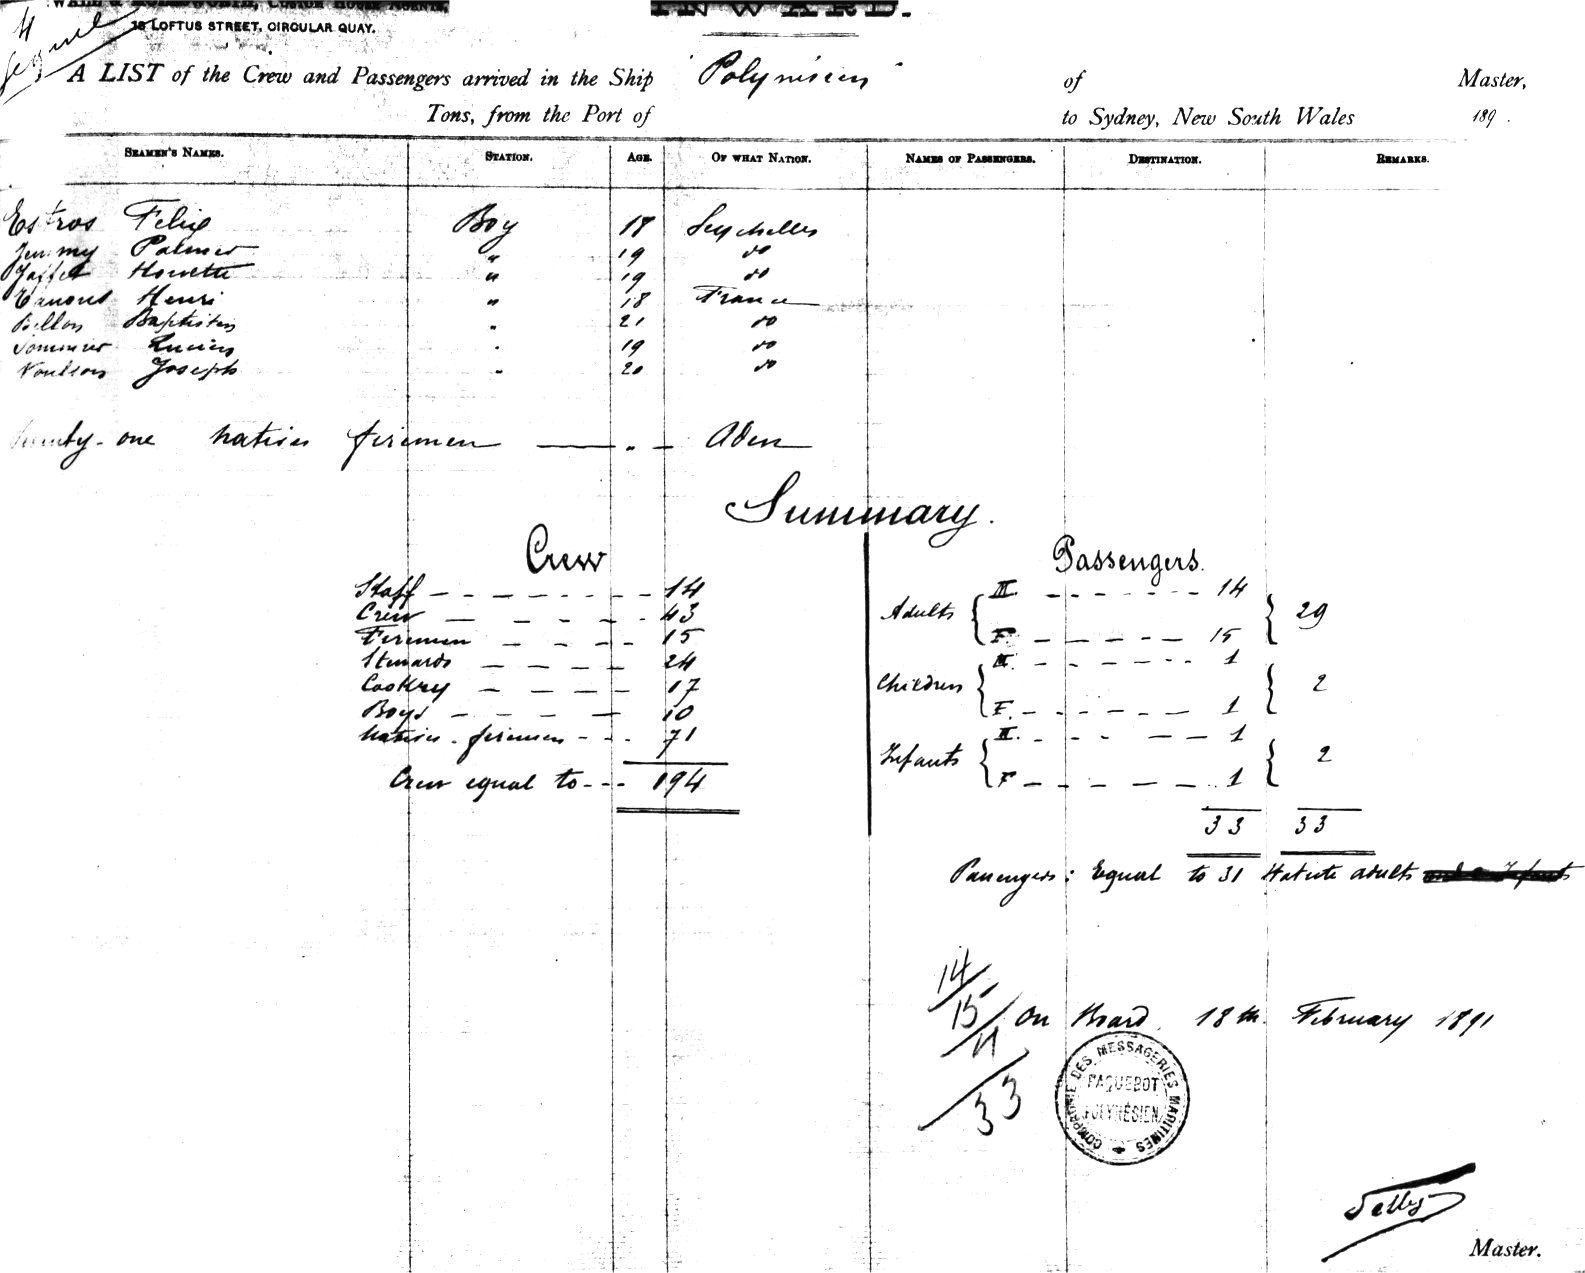 WALL & HOLDSWORTH, CUSTOM HOUSE AGENTS,
INWARD.
18 LOFTUS STREET, CIRCULAR QUAY.
4
A LIST of the Crew and Passengers arrived in the Ship "Polynésien" of Master,
Tons, from the Port of to Sydney, New South Wales 189 .
SEAMEN'S NAMES. STATION. AGE. OF WHAT NATION. NAMES OF PASSENGERS. DESTINATION. REMARKS.
Estros Felix Boy 18 Seychelles
Jemmy Palmer " 19 do
Jaffet " 19 do
Henri " 18 France
Billon Baptistin " 21 do
Lucien " 19 do
Joseph " 20 do
-one natives firemen — " — Aden
Summary.
Crew
Passengers.
Staff 14
Crew 43
Firemen 15
Stewards 24
Cookry 17
Boys 10
natives firemen 71
Crew equal to 194
Adults { M. 14
F. 15 } 29
Children { M. 1
F. 1 } 2
Infants { M. 1
F 1 } 2
33 33
Passengers: Equal to 31 Statute adults
14
15
4
33
On Board, 18th February 1891
COMPAGNIE DES MESSAGERIES MARITIMES
PAQUEBOT
POLYNÉSIEN
Master.